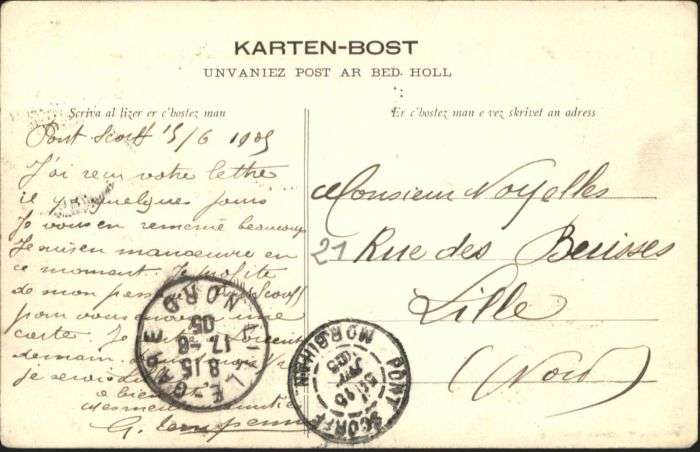 KARTEN-BOST
UNVANIEZ POST AR BED-HOLL
Scriva al lizer er c'hostez man
Er c'hostez man e vez skrivet an adress
Pont Scorff 15/6 1905
J'ai reçu votre lettre
il y a quelques jours
Je vous en remercie beaucoup
Je suis en manœuvre en
ce moment. Je profite
de mon Scorff
pour vous une
carte. Je
demain
je serai
à bientôt
amitié
Monsieur Noyelles
21 Rue des Buisses
Lille
(Nord)
LILLE-GARE
NORD
8 15
17-6
05
PONT SCORFF
MORBIHAN